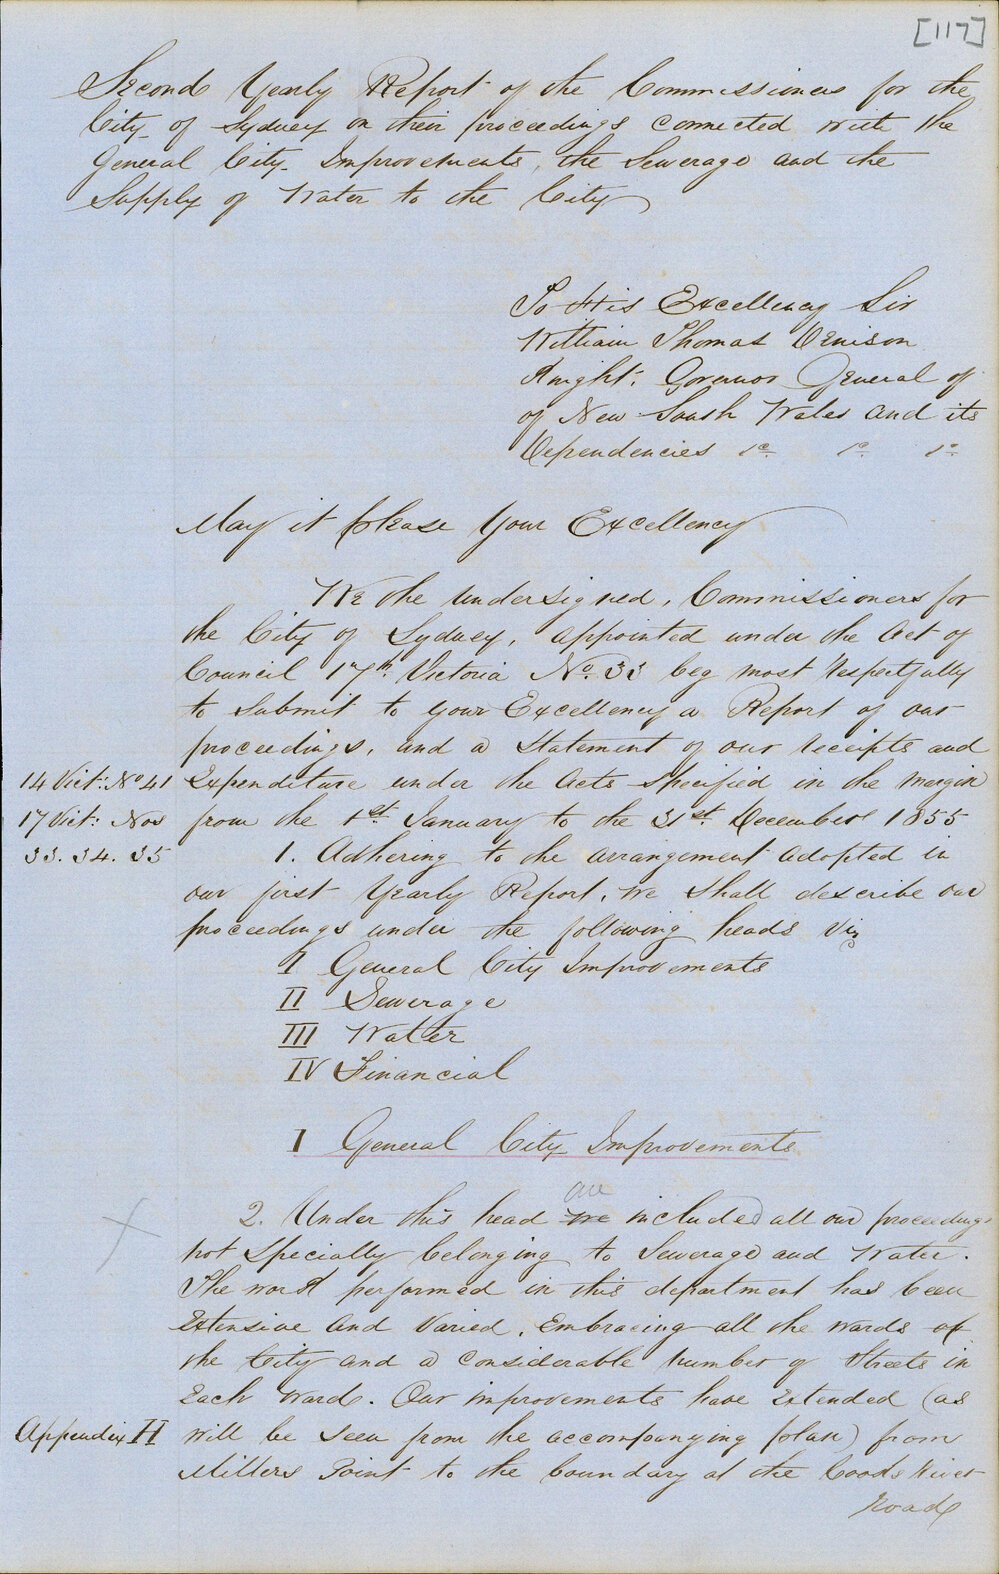 [117]
Second Yearly Report of the Commissioners for the
City of Sydney on their proceedings connected with the
General City Improvements, the Sewerage and the
Supply of Water to the City
To His Excellency Sir
William Thomas Denison
Knight. Governor General of
of New South Wales and its
Dependencies &c &c &c
May it please Your Excellency
We the undersigned, Commissioners for
the City of Sydney, appointed under the Act of
Council 17th Victoria No. 33 beg most respectfully
to submit to your Excellency a Report of our
proceedings, and a Statement of our receipts and
14 Vict: No 41 Expenditure under the Acts specified in the margin
17 Vict: Nos from the 1st January to the 31st December 1855
33. 34. 35 1. Adhering to the arrangement adopted in
our first Yearly Report, we shall describe our
proceedings under the following heads Viz
I General City Improvements
II Sewerage
III Water
IV Financial
I General City Improvements
are
2. Under this head we included all our proceedings
not specially belonging to Sewerage and Water.
The work performed in this department has been
extensive and varied, embracing all the wards of
the City and a considerable number of Streets in
each ward. Our improvements have extended (as
Appendix H will be seen from the accompanying plan) from
Millers Point to the boundary at the Cooks River
Road